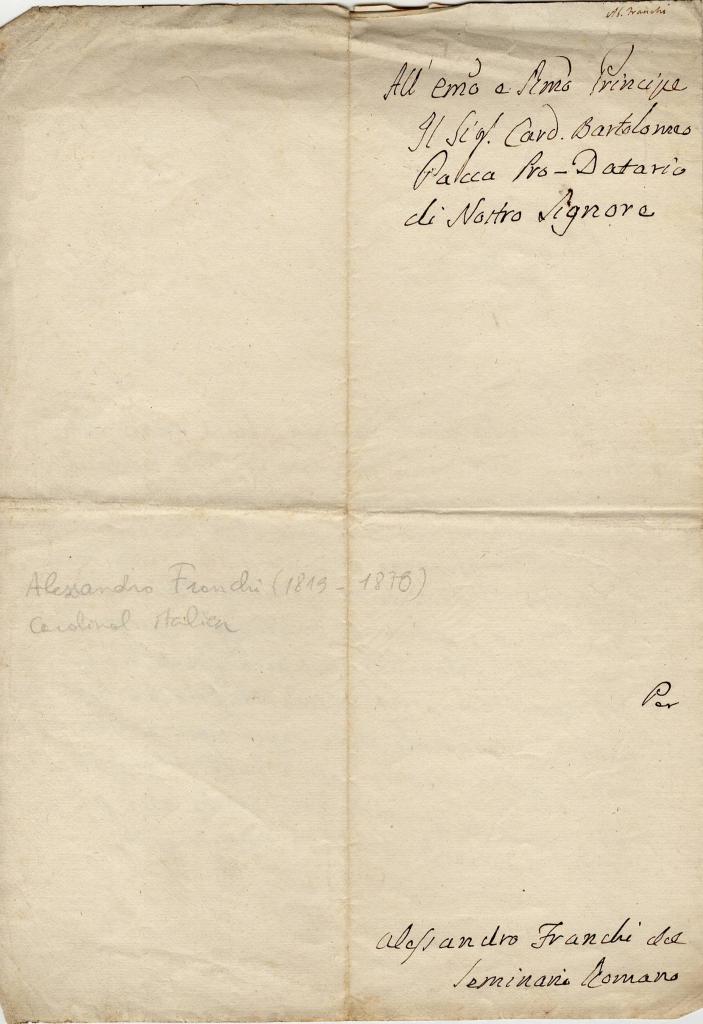 Al. Franchi
All' Emo e Rmo Principe
Il Sig. Card. Bartolomeo
Pacca Pro-Datario
di Nostro Signore
Alessandro Franchi (1819 - 1878)
Cardinal italien
Per
Alessandro Franchi del
Seminario Romano